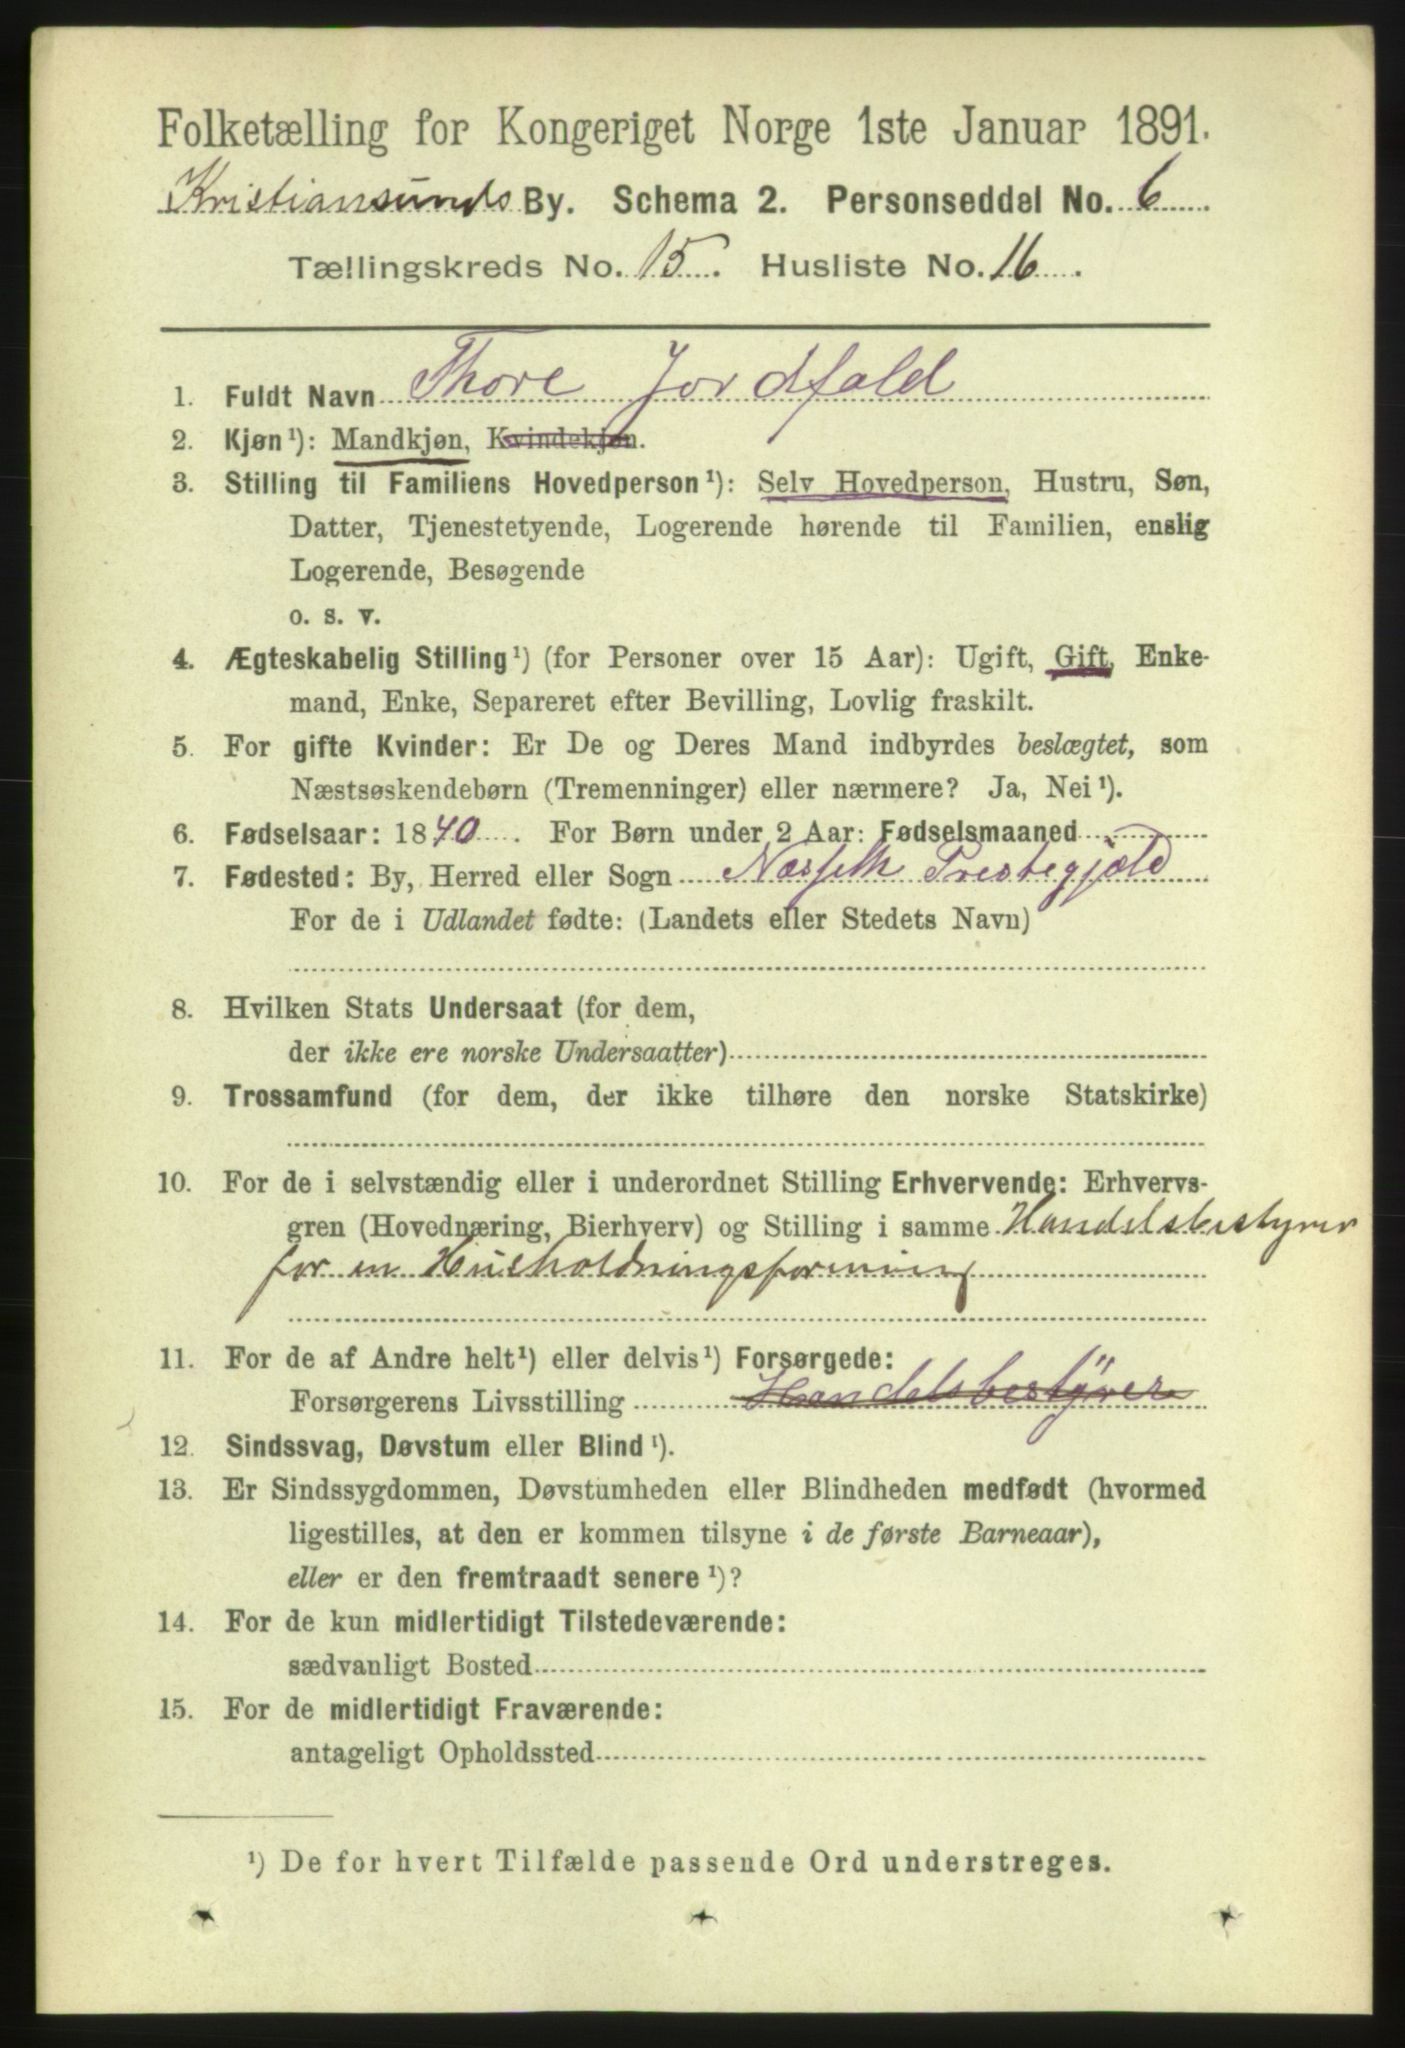 Folketælling for Kongeriget Norge 1ste Januar 1891.
Kristiansunds By. Schema 2. Personseddel No. 6
Tællingskreds No. 15. Husliste No. 16.
1. Fuldt Navn Thore Jordfald
2. Kjøn¹): Mandkjøn, Kvindekjøn.
3. Stilling til Familiens Hovedperson¹): Selv Hovedperson, Hustru, Søn,
Datter, Tjenestetyende, Logerende hørende til Familien, enslig
Logerende, Besøgende
o. s. v.
4. Ægteskabelig Stilling¹) (for Personer over 15 Aar): Ugift, Gift, Enke-
mand, Enke, Separeret efter Bevilling, Lovlig fraskilt.
5. For gifte Kvinder: Er De og Deres Mand indbyrdes beslægtet, som
Næstsøskendebørn (Tremenninger) eller nærmere? Ja, Nei¹).
6. Fødselsaar: 1840. For Børn under 2 Aar: Fødselsmaaned
7. Fødested: By, Herred eller Sogn Næsseth Prestegjæld
For de i Udlandet fødte: (Landets eller Stedets Navn)
8. Hvilken Stats Undersaat (for dem,
der ikke ere norske Undersaatter)
9. Trossamfund (for dem, der ikke tilhøre den norske Statskirke)
10. For de i selvstændig eller i underordnet Stilling Erhvervende: Erhvervs-
gren (Hovednæring, Bierhverv) og Stilling i samme Handelsbestyrer
for en Husholdningsforening
11. For de af Andre helt¹) eller delvis¹) Forsørgede:
Forsørgerens Livsstilling Handelsbestÿrer
12. Sindssvag, Døvstum eller Blind¹).
13. Er Sindssygdommen, Døvstumheden eller Blindheden medfødt (hvormed
ligestilles, at den er kommen tilsyne i de første Barneaar),
eller er den fremtraadt senere¹)?
14. For de kun midlertidigt Tilstedeværende:
sædvanligt Bosted
15. For de midlertidigt Fraværende:
antageligt Opholdssted
¹) De for hvert Tilfælde passende Ord understreges.